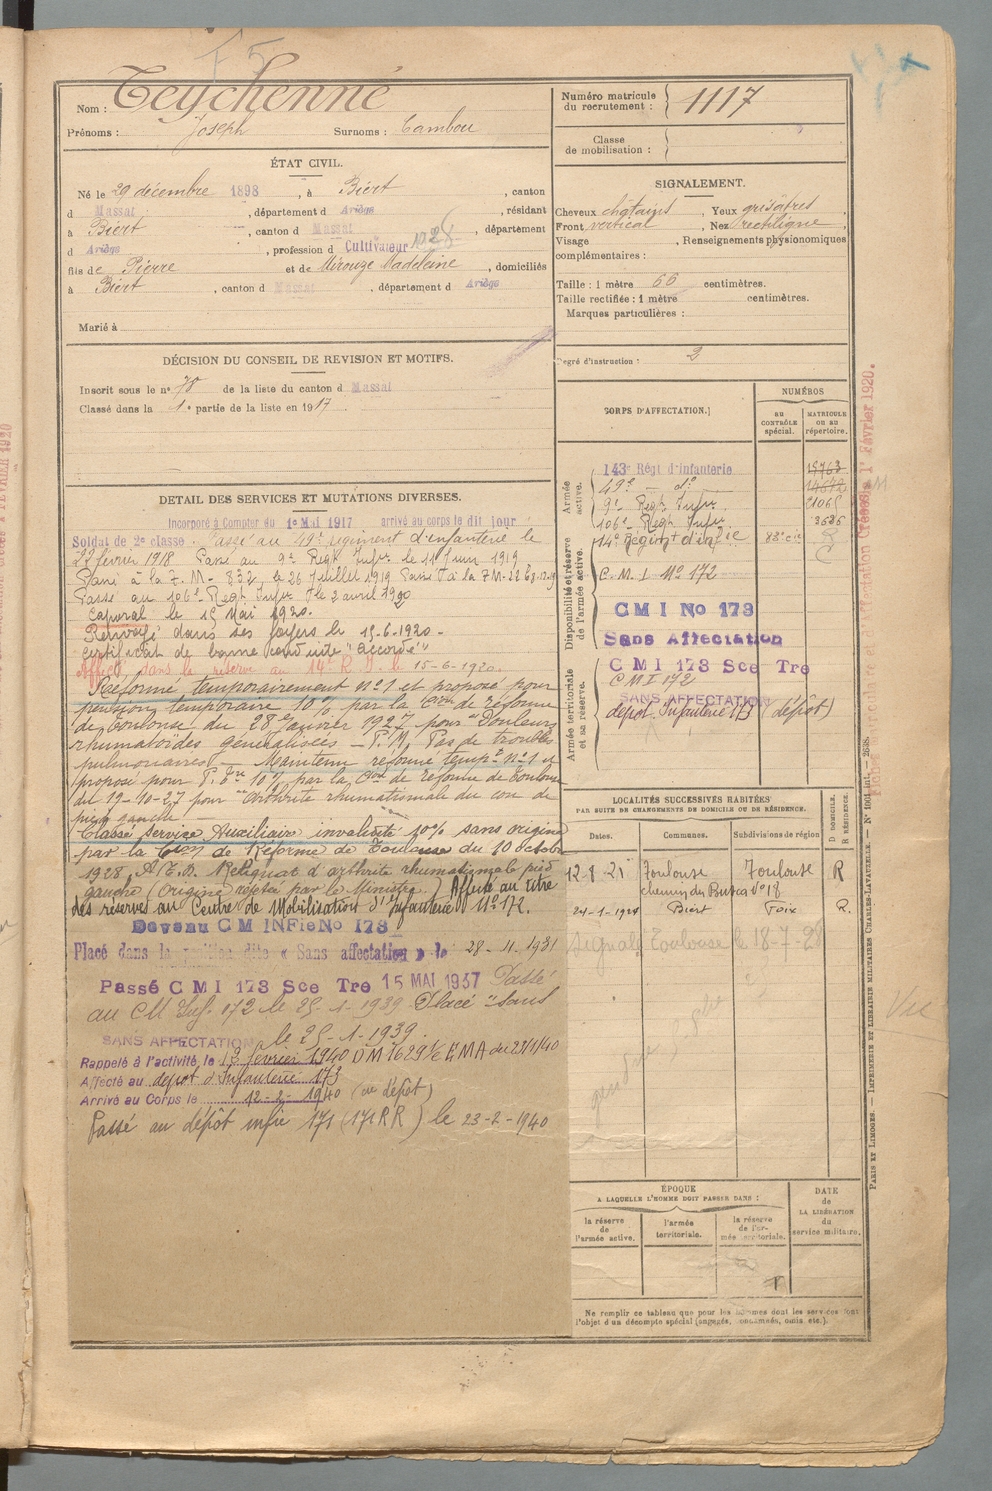 F 5
Nom : Teychenné
Prénoms : Joseph Surnoms : Tambou
Numéro matricule du recrutement : 1117
Classe de mobilisation :
ÉTAT CIVIL.
Né le 29 décembre 1898, à Biert, canton
d Massat, département d Ariège, résidant
à Biert, canton d Massat, département
d Ariège, profession d Cultivateur 1028
fils de Pierre et de Mirouze Madeleine, domiciliés
à Biert, canton d Massat, département d Ariège
Marié à
SIGNALEMENT.
Cheveux chatains, Yeux grisâtres,
Front vertical, Nez rectiligne,
Visage, Renseignements physionomiques
complémentaires :
Taille : 1 mètre 66 centimètres.
Taille rectifiée : 1 mètre centimètres.
Marques particulières :
Degré d'instruction : 2
DÉCISION DU CONSEIL DE REVISION ET MOTIFS.
Inscrit sous le n° 70 de la liste du canton d Massat
Classé dans la 1e partie de la liste en 1917
DETAIL DES SERVICES ET MUTATIONS DIVERSES.
Incorporé à Compter du 1er Mai 1917 arrivé au corps le dit jour
Soldat de 2e classe. Passé au 49e régiment d'infanterie le
22 février 1918 Passé au 9e Regt Infie le 11 Juin 1919
Passé à la Z.M. 832, le 26 Juillet 1919 Passé à la Z M
Passé au 106e Regt Infie le 2 avril 1920
Caporal le 15 Mai 1920.
Renvoyé dans ses foyers le 15-6-1920-
Certificat de bonne conduite "Accordé"
Affecté dans la réserve au 14e R.I. le 15-6-1920.
Réformé temporairement n°1 et proposé pour
pension temporaire 10% par la Con de réforme
de Toulouse du 28 janvier 1927 pour "Douleurs
rhumatoïdes généralisées - P.M. Pas de troubles
pulmonaires - Maintenu réformé tempre n°1 et
proposé pour P. Tre 10% par la Con de réforme de Toulouse
du 19-10-27 pour "Arthrite rhumatismale du cou de
pied gauche -
Classé Service Auxiliaire invalidité 10% sans origine
par la Cion de Réforme de Toulouse du 10 octobre
1928. Reliquat d'arthrite rhumatismale pied
gauche (Origine rejetée par le Ministre) Affecté au titre
des réserves au Centre de Mobilisation d'Infanterie N°172.
Devenu C M INFie No 173
Placé dans la position dite « Sans affectation » le 28-11-1931
Passé C M I 173 Sce Tre 15 MAI 1937 Passé
au CM Inf. 172 le 25-1-1939 Placé "sans
SANS AFFECTATION le 25-1-1939.
Rappelé à l'activité le 13 février 1940 DM 1629 E M A du 23/1/40
Affecté au dépôt d'Infanterie 173
Arrivé au Corps le 12-2-1940 (au dépôt)
Passé au dépôt infie 171 (171 RR) le 23-2-1940
CORPS D'AFFECTATION.
NUMÉROS
AU CONTRÔLE spécial.
MATRICULE OU AU répertoire.
Armée active.
143e Régt d'Infanterie 18763
49e - do 14642
9e Regt Infie 21065
106e Regt Infie 3636
Disponibilité et réserve de l'armée active.
14e Régiment d'Infie
C.M.I N° 172
C M I No 173
Sans Affectation
Armée territoriale et sa réserve.
C M I 173 Sce Tre
CMI 172
SANS AFFECTATION
dépôt Infanterie 173 (dépôt)
LOCALITÉS SUCCESSIVES HABITÉES
PAR SUITE DE CHANGEMENTS DE DOMICILE OU DE RÉSIDENCE.
Dates. Communes. Subdivisions de région D DOMICILE. R RÉSIDENCE.
12-8-25 Toulouse Toulouse R
chemin du Busca N°18
24-1-1928 Biert Foix R.
Signalé Toulouse le 18-7-28
Vu
ÉPOQUE
A LAQUELLE L'HOMME DOIT PASSER DANS :
la réserve de l'armée active.
l'armée territoriale.
la réserve de l'armée territoriale.
DATE de LA LIBÉRATION du service militaire.
Ne remplir ce tableau que pour les hommes dont les services font
l'objet d'un décompte spécial (engagés, condamnés, omis etc.).
PARIS ET LIMOGES. — IMPRIMERIE ET LIBRAIRIE MILITAIRES CHARLES-LAVAUZELLE.